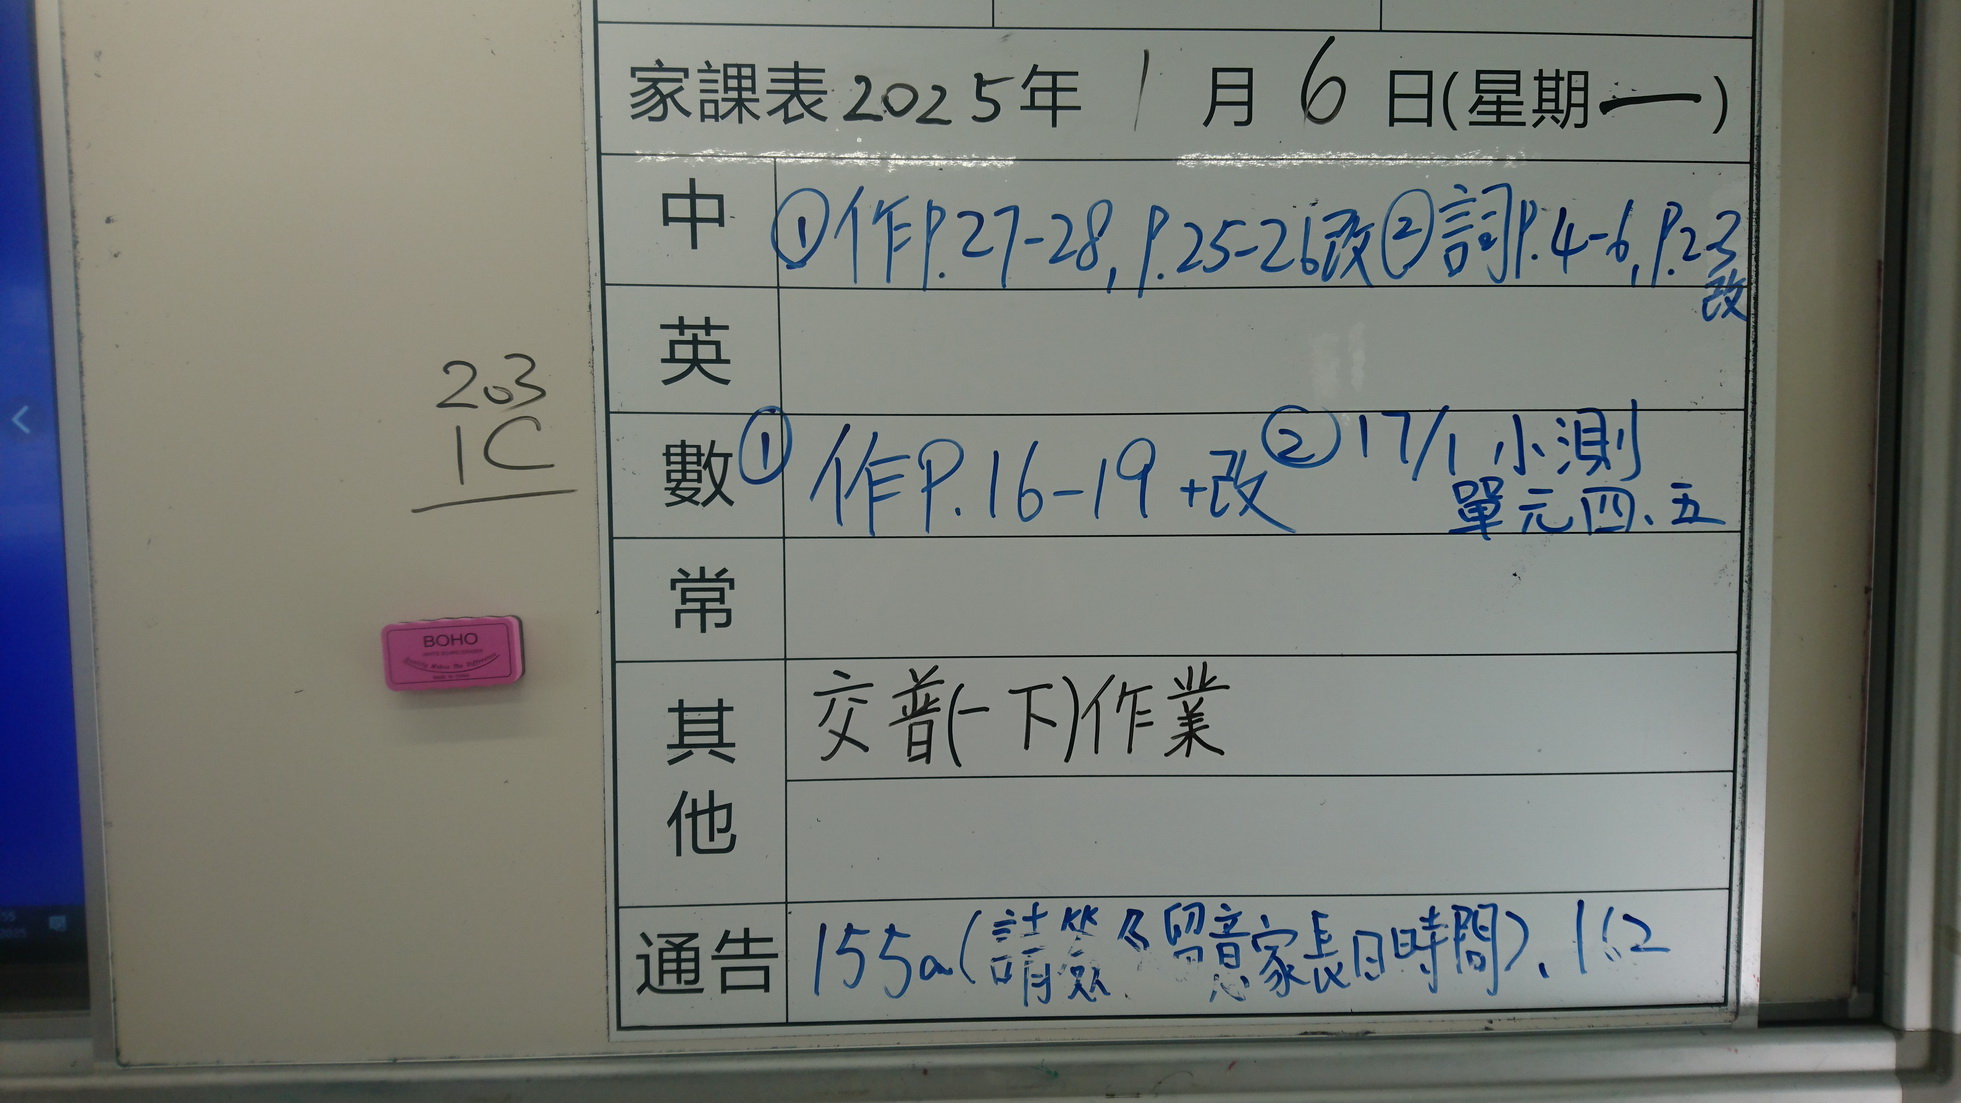 家課表2025年 1 月 6 日(星期一)
中 ①作P.27-28, P.25-26改②詞P.4-6, P.2-3
改
英
數 ① 作P.16-19 +改 ② 17/1 小測
單元四、五
203
1C
常
BOHO
其他
交普(一下)作業
通告 155a(請簽及留意家長日時間)、162